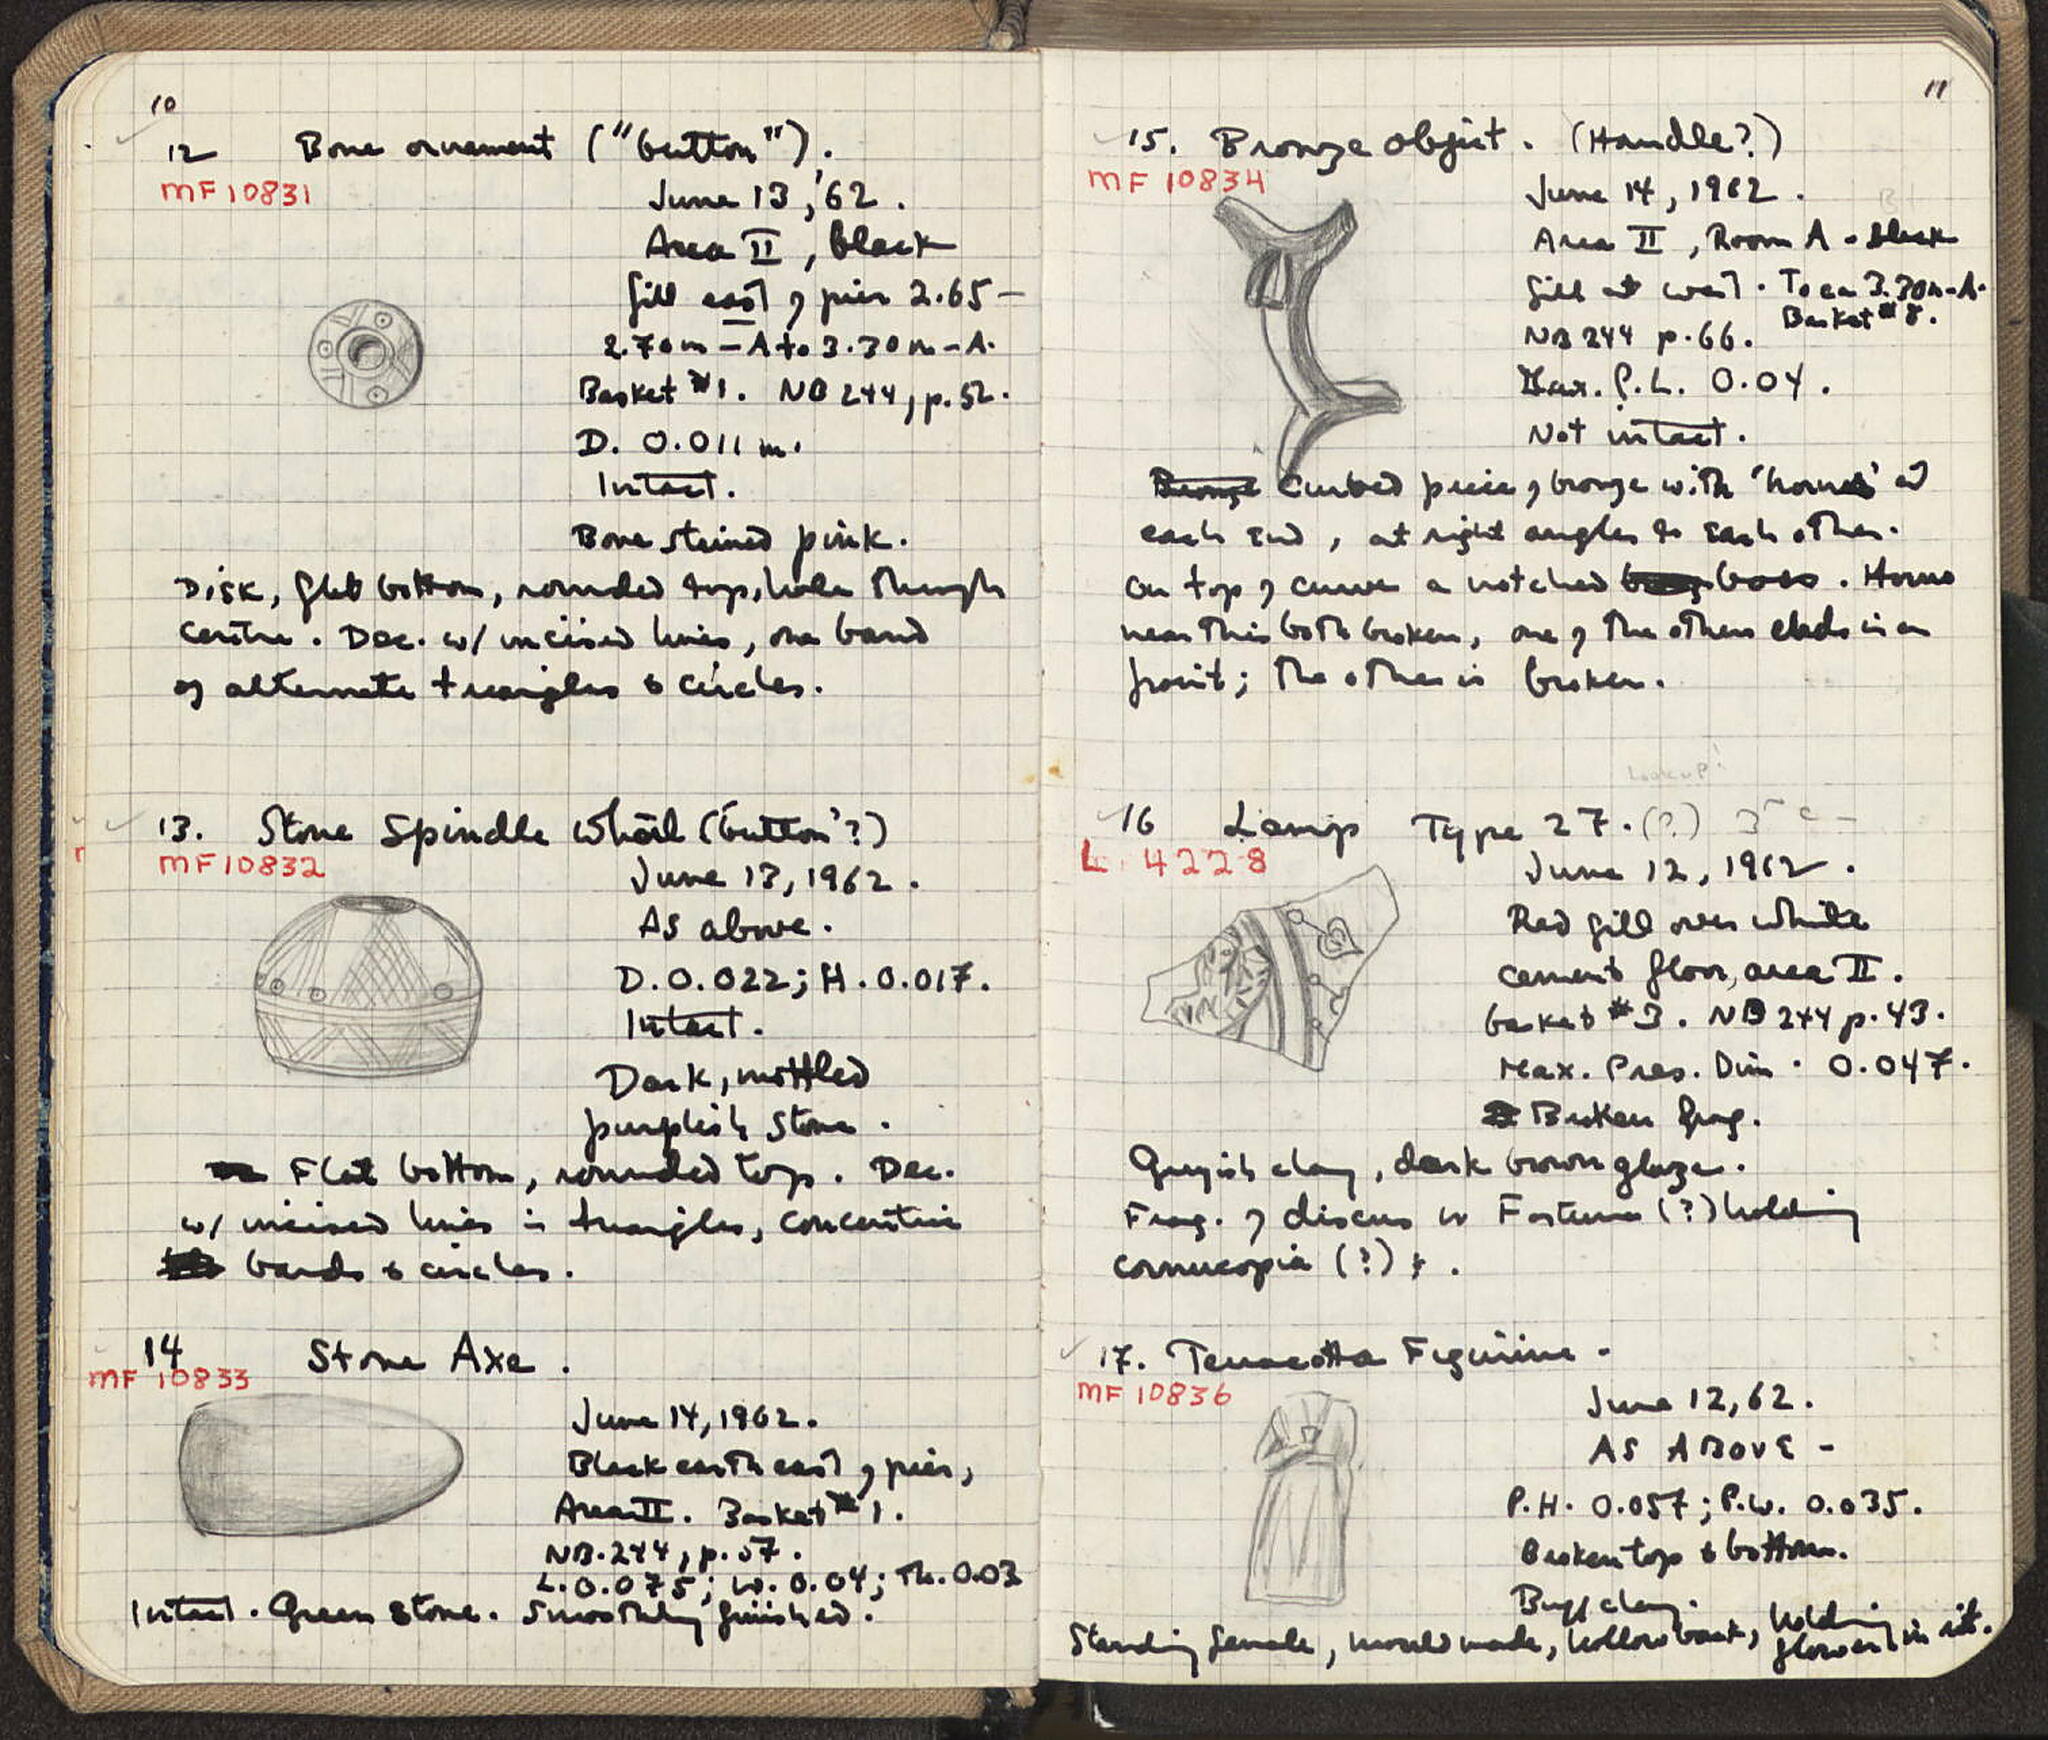 10
12 Bone ornament ("button").
MF 10831
June 13, '62.
Area II, black
fill east of pier 2.65 –
2.70m – A to 3.30m – A.
Basket #1. NB 244, p. 52.
D. 0.011 m.
Intact.
Bone stained pink.
Disk, flat bottom, rounded top, hole through
centre. Dec. w/ incised lines, one band
of alternate triangles & circles.
13. Stone Spindle Whorl ('button'?)
MF 10832
June 13, 1962.
As above.
D. 0.022; H. 0.017.
Intact.
Dark, mottled
purplish stone.
Flat bottom, rounded top. Dec.
w/ incised lines in triangles, concentric
bands & circles.
14 Stone Axe.
MF 10833
June 14, 1962.
Black earth east of pier,
Area II. Basket #1.
NB. 244, p. 57.
L. 0.075; W. 0.04; Th. 0.03
Intact. Green stone. Smoothly finished.
11
15. Bronze object. (Handle?)
MF 10834
June 14, 1962.
Area II, Room A - black
fill at west. To ca 3.30m-A.
Basket #8.
NB 244 p. 66.
Max. P. L. 0.04.
Not intact.
Bronze Curved piece of bronze with 'horns' at
each end, at right angles to each other.
On top of curve a notched boss. Horns
near this both broken, one of the others ends in a
point; the other is broken.
Look up!
16 Lamp Type 27. (?)
L 4228
June 12, 1962.
Red fill over white
cement floor, area II.
basket #3. NB 244 p. 43.
Max. Pres. Dim. 0.047.
Broken frag.
Greyish clay, dark brown glaze.
Frag. of discus w Fortuna (?) holding
cornucopia (?).
17. Terracotta Figurine.
MF 10836
June 12, 62.
AS ABOVE –
P.H. 0.057; P.W. 0.035.
Broken top & bottom.
Buff clay.
Standing female, mould made, hollow back, holding
flower in rt.